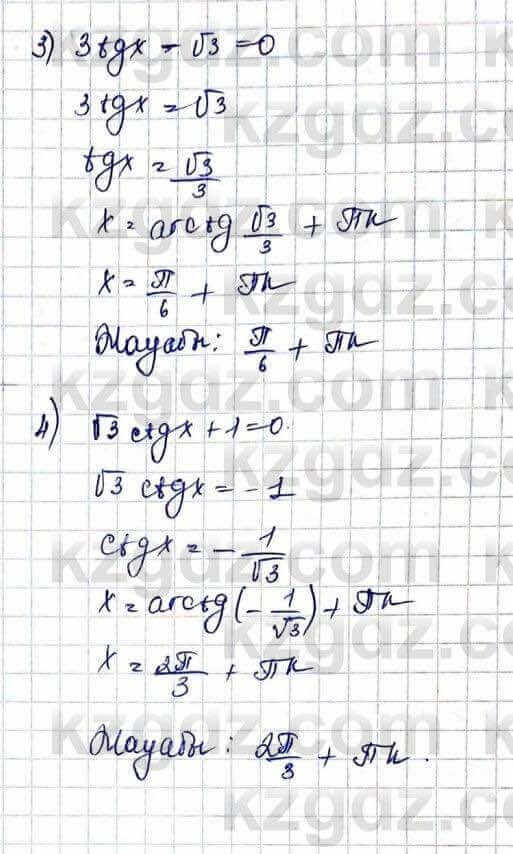 3) 3tgx - √3 = 0
3tgx = √3
tgx = √3/3
x = arctg √3/3 + πk
x = π/6 + πk
Жауабы: π/6 + πk
4) √3 ctgx + 1 = 0.
√3 ctgx = -1
ctgx = - 1/√3
x = arcctg(- 1/√3) + πk
x = 2π/3 + πk
Жауабы: 2π/3 + πk.
kzgdz.com